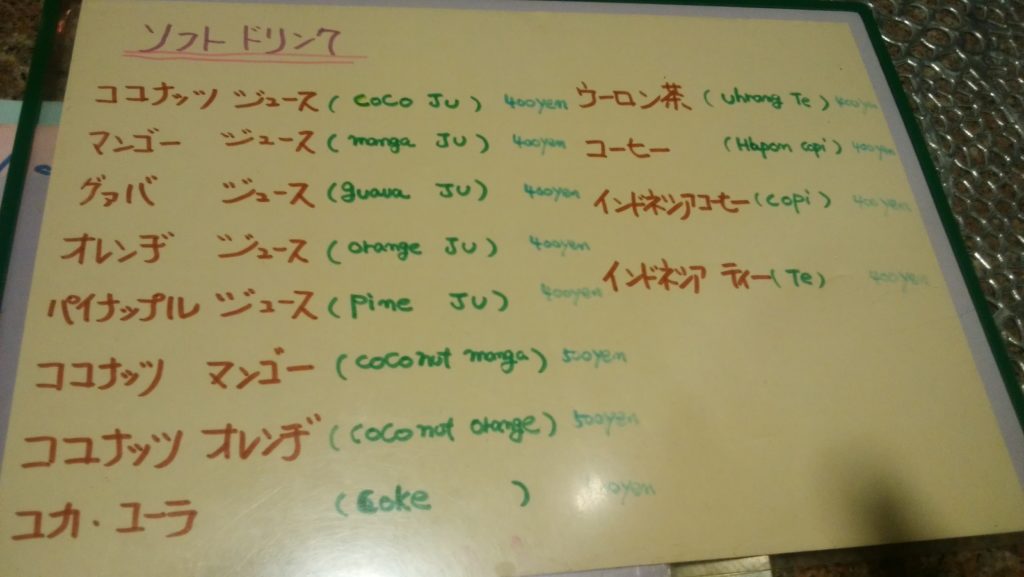 ソフトドリンク
ココナッツ ジュース (coco JU) 400yen
マンゴー ジュース (manga JU) 400yen
グァバ ジュース (guava JU) 400yen
オレンヂ ジュース (orange JU) 400yen
パイナップル ジュース (pine JU) 400yen
ココナッツ マンゴー (coconut manga) 500yen
ココナッツ オレンヂ (coconut orange) 500yen
コカ・コーラ (coke)
ウーロン茶 (Uhrong Te) 400yen
コーヒー (Hapon copi) 400yen
インドネシアコーヒー (copi) 400yen
インドネシア ティー (Te) 400yen